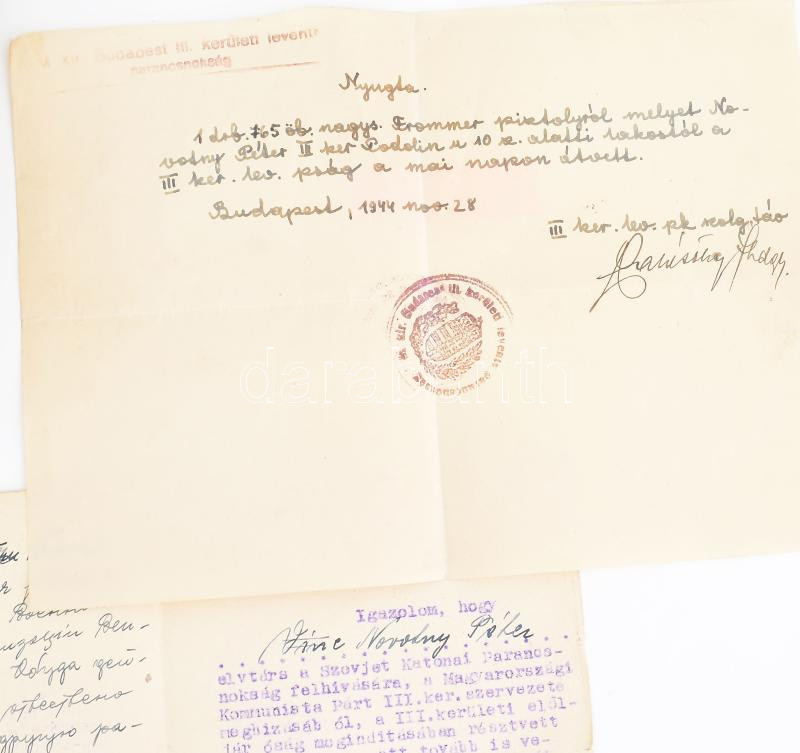 M. Kir. Budapest III. kerületi levente
parancsnokság
Nyugta.
1 drb. 765 öb. nagys. Frommer pisztolyról melyet No-
votny Péter III ker Podolin u 10 sz. alatti lakostól a
III ker. lev. pság a mai napon átvett.
Budapest, 1944 nov. 28
III ker. lev. pk szolg.
M. kir. Budapest III. kerületi levente parancsnokság
darabanth
Igazolom, hogy
Vince Novotny Péter
elvtárs a Szovjet Katonai Parancs-
nokság felhivására, a Magyarországi
Kommunista Párt III.ker.szervezete
megbizásáb ól, a III.kerületi elöl-
jár óság meginditásában résztvett
tovább is ve-
Военн
Вен-
ответствено
другую ра-